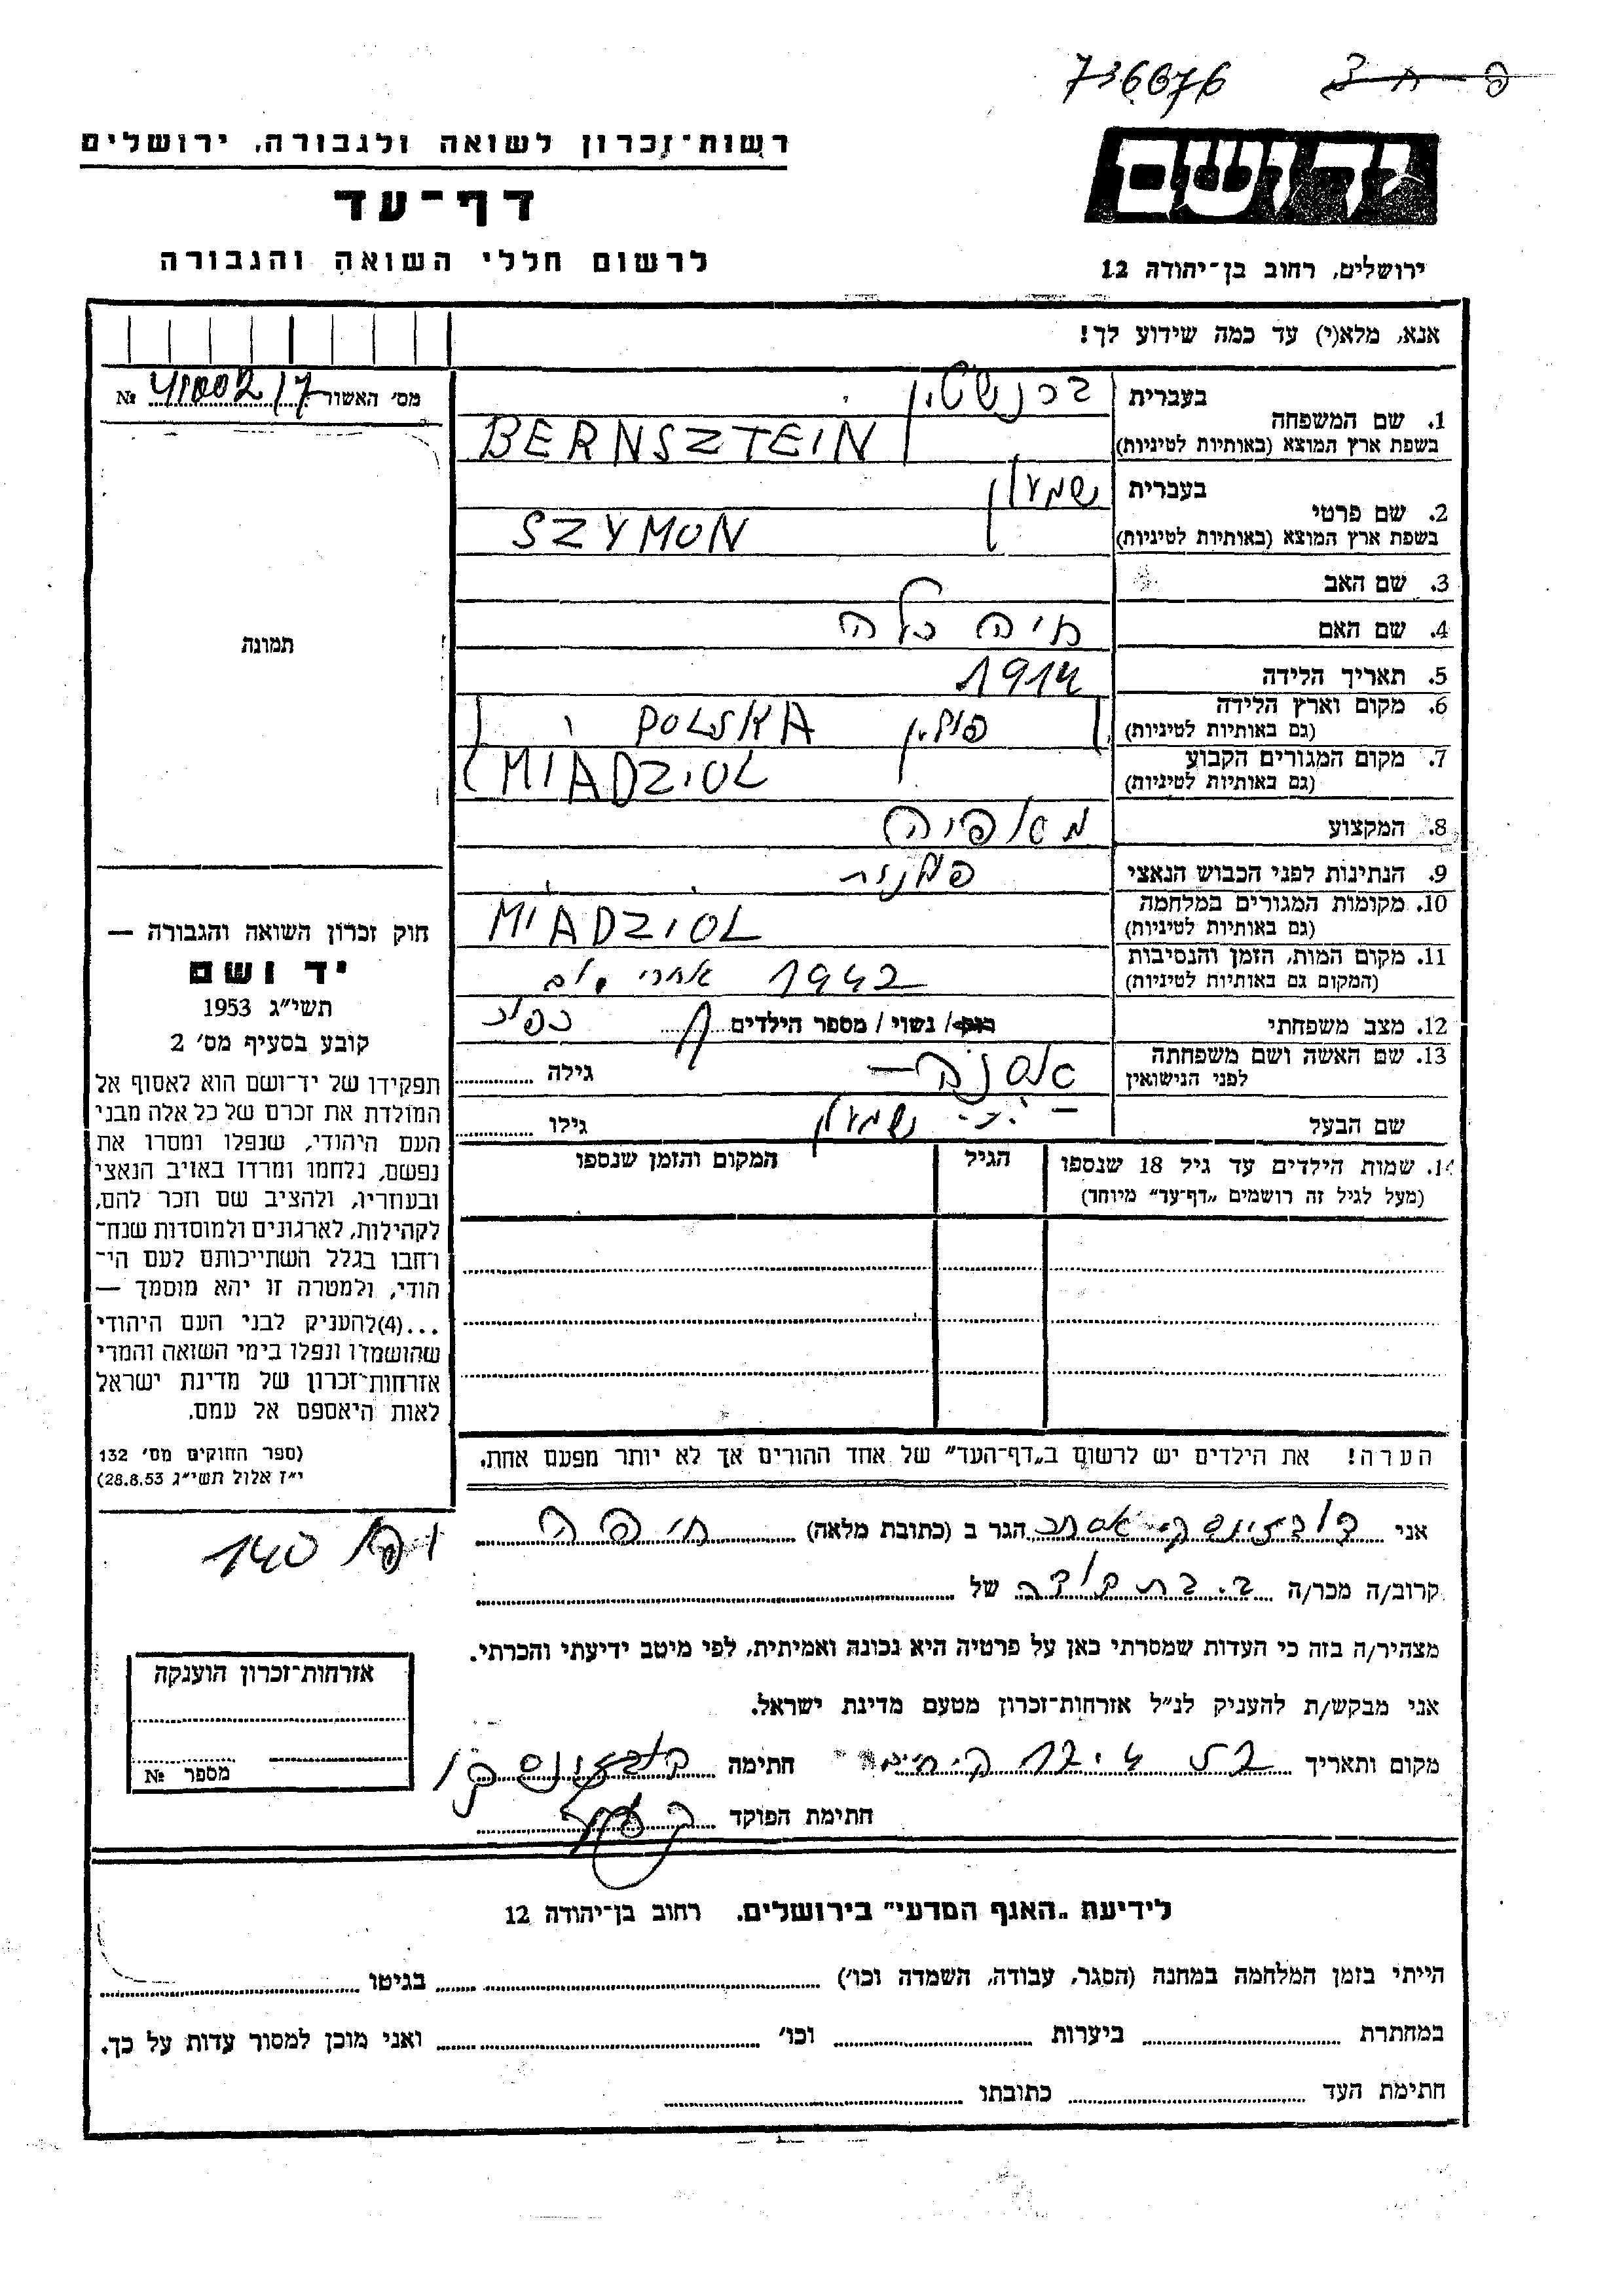 736676
יד ושם
רשות־זכרון לשואה ולגבורה, ירושלים
דף־עד
לרשום חללי השואה והגבורה
ירושלים, רחוב בן־יהודה 12
אנא, מלא(י) עד כמה שידוע לך!
מס' האשור № 41002/7
תמונה
1. שם המשפחה
בעברית ברנשטין
בשפת ארץ המוצא (באותיות לטיניות) BERNSZTEIN
2. שם פרטי
בעברית שמעון
בשפת ארץ המוצא (באותיות לטיניות) SZYMON
3. שם האב
4. שם האם חיה כלה
5. תאריך הלידה 1914
6. מקום וארץ הלידה פולין POLSKA
(גם באותיות לטיניות)
7. מקום המגורים הקבוע MIADZIOL
(גם באותיות לטיניות)
8. המקצוע מאפיה
9. הנתינות לפני הכבוש הנאצי פולנית
10. מקומות המגורים במלחמה MIADZIOL
(גם באותיות לטיניות)
11. מקום המות, הזמן והנסיבות 1942 אחרי
(המקום גם באותיות לטיניות)
12. מצב משפחתי רוק/ נשוי / מספר הילדים
13. שם האשה ושם משפחתה
לפני הנישואין
גילה
שם הבעל שמעון גילו
14. שמות הילדים עד גיל 18 שנספו
(מעל לגיל זה רושמים „דף־עד" מיוחד)
הגיל
המקום והזמן שנספו
הערה! את הילדים יש לרשום ב„דף־העד" של אחד ההורים אך לא יותר מפעם אחת.
חוק זכרון השואה והגבורה —
יד ושם
תשי"ג 1953
קובע בסעיף מס' 2
תפקידו של יד־ושם הוא לאסוף אל
המולדת את זכרם של כל אלה מבני
העם היהודי, שנפלו ומסרו את
נפשם, נלחמו ומרדו באויב הנאצי
ובעוזריו, ולהציב שם וזכר להם,
לקהילות, לארגונים ולמוסדות שנח־
רחבו בגלל השתייכותם לעם הי־
הודי, ולמטרה זו יהא מוסמך —
...(4)להעניק לבני העם היהודי
שהושמדו ונפלו בימי השואה והמרי
אזרחות־זכרון של מדינת ישראל
לאות היאספם אל עמם.
(ספר החוקים מס' 132
י"ז אלול תשי"ג 28.8.53)
140
אני אסתר הגר ב (כתובת מלאה) חיפה
קרוב/ה מכר/ה בת דודה של
מצהיר/ה בזה כי העדות שמסרתי כאן על פרטיה היא נכונה ואמיתית, לפי מיטב ידיעתי והכרתי.
אני מבקש/ת להעניק לנ"ל אזרחות־זכרון מטעם מדינת ישראל.
מקום ותאריך חתימה
חתימת הפוקד
אזרחות־זכרון הוענקה
מספר №
לידיעת „האגף המדעי" בירושלים, רחוב בן־יהודה 12
הייתי בזמן המלחמה במחנה (הסגר, עבודה, השמדה וכו') בגיטו
במחתרת ביערות וכו' ואני מוכן למסור עדות על כך.
חתימת העד כתובתו